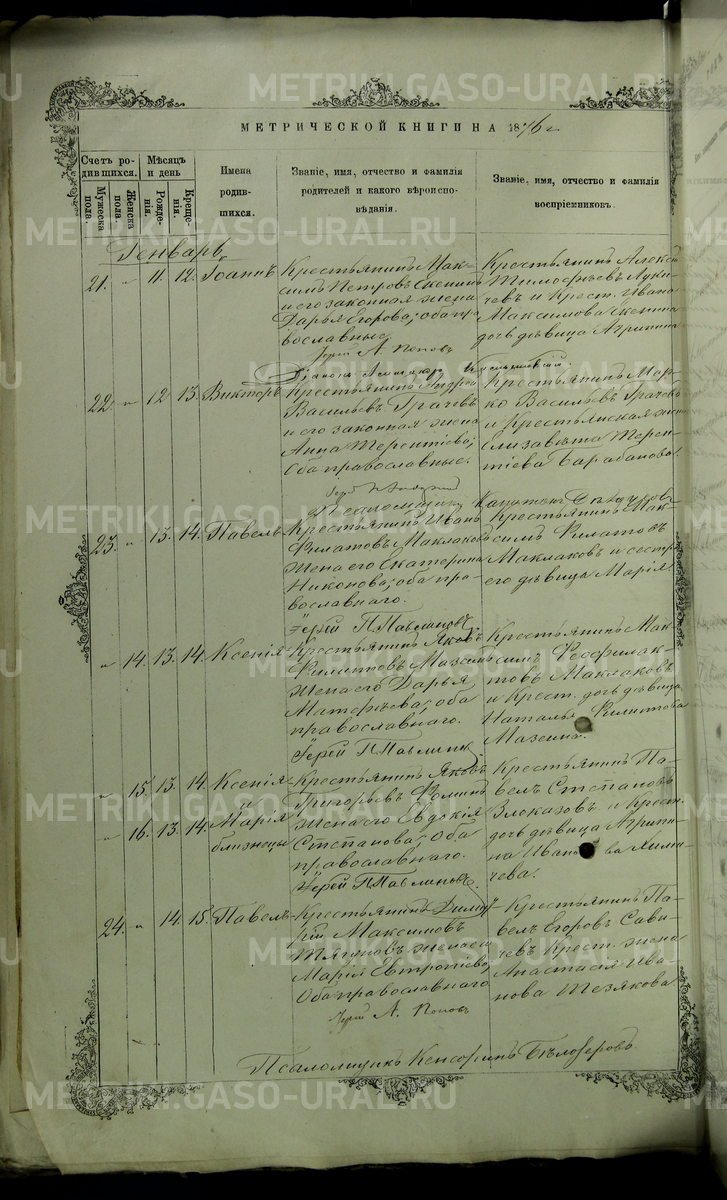 МЕТРИЧЕСКОЙ КНИГИ НА 1876 г.
Счетъ ро-
дившихся.
Мѣсяцъ
и день
Имена
родив-
шихся.
Званіе, имя, отчество и фамилія
родителей и какого вѣроиспо-
вѣданія.
Званіе, имя, отчество и фамилія
воспріемниковъ.
Мужеска
пола.
Женска
пола.
Рожде-
нія.
Креще-
нія.
Генварь
21. " 11. 12. Іоаннъ
Крестьянинъ Мак-
симъ Петровъ
и его законная жена
Дарья Егорова; оба пра
вославные
Іерей А. Поповъ
Крестьянинъ Алексѣй
Тимофѣевъ Луки-
чевъ и Крест. Ивана
Максимова
дочь дѣвица Агрипина
22. " 12. 13. Викторъ
Крестьянинъ Андрей
Васильевъ Грачевъ
и его законная жена
Анна Терентіева;
Оба православные.
Крестьянинъ Мар-
ко Васильевъ Грачевъ
и Крестьянская жена
Елизавета Терен-
тіева Барабанова.
Псаломщикъ
23. " 13. 14. Павелъ
Крестьянинъ Иванъ
Филатовъ Маклаковъ
жена его Екатерина
Никонова; оба пра-
вославнаго.
Іерей П. Павлиновъ
Крестьянинъ Мак-
симъ Филатовъ
Маклаковъ и сестра
его дѣвица Марія.
" 14. 13. 14. Ксенія
Крестьянинъ Яковъ
Филиповъ Мазеинъ
жена его Дарья
Матфѣева; оба
православнаго.
Іерей П. Павлин
Крестьянинъ Мак
симъ Феофилак-
товъ Маклаковъ
и Крест. дочь дѣвица
Наталья Филитова
Мазеина.
" 15. 13. 14. Ксенія
и
" 16. 13. 14. Марія
близнецы
Крестьянинъ Яковъ
Григорьевъ Фоминъ
жена его Евдокія
Степанова; оба
православнаго.
Іерей П. Павлиновъ.
Крестьянинъ Па-
велъ Степановъ
Злоказовъ и Крест.
дочь дѣвица Агрипи-
на Иванова
24. " 14. 15. Павелъ
Крестьянинъ Димит
рій Максимовъ
Тягуновъ жена его
Марія Евтропіева,
Оба православнаго
Іерей А. Поповъ
Крестьянинъ Па-
велъ Егоровъ Сави-
чевъ Крест. жена
Анастасія Ива-
нова Тезякова
Псаломщикъ Кенсоринъ Бѣлозеровъ
METRIKI.GASO-URAL.RU